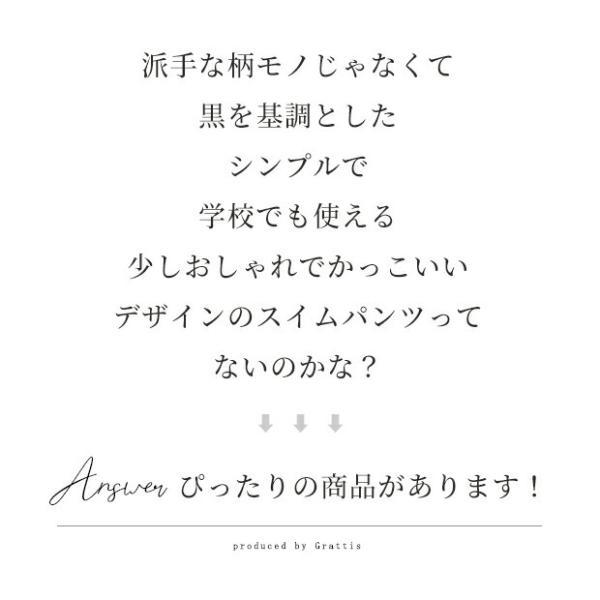 派手な柄モノじゃなくて
黒を基調とした
シンプルで
学校でも使える
少しおしゃれでかっこいい
デザインのスイムパンツって
ないのかな？
Answer ぴったりの商品があります！
produced by Grattis